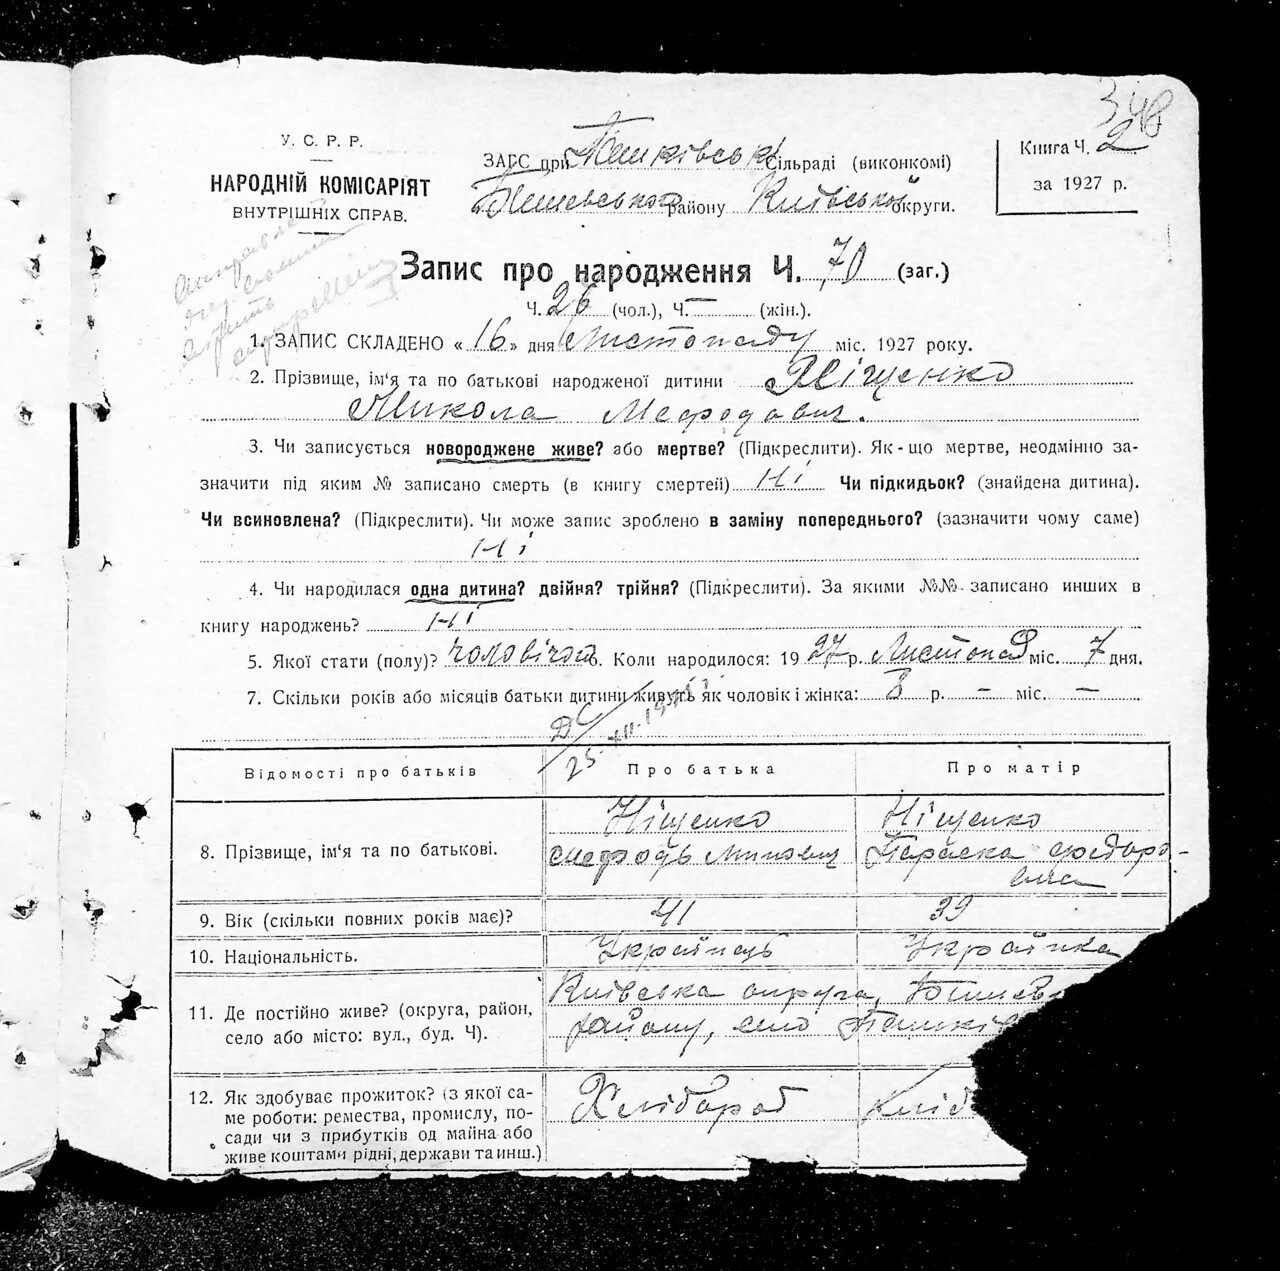 348
У. С. Р. Р.
НАРОДНІЙ КОМІСАРІЯТ
ВНУТРІШНІХ СПРАВ.
ЗАГС при Сільраді (виконкомі)
району Київської округи.
Книга Ч. 2
за 1927 р.
Запис про народження Ч. 70 (заг.)
Ч. 26 (чол.), Ч. — (жін.).
1. ЗАПИС СКЛАДЕНО « 16 » дня Листопаду міс. 1927 року.
2. Прізвище, ім'я та по батькові народженої дитини Ніщенко
Микола Мефодович.
3. Чи записується новороджене живе? або мертве? (Підкреслити). Як-що мертве, неодмінно за-
значити під яким № записано смерть (в книгу смертей) Ні Чи підкидьок? (знайдена дитина).
Чи всиновлена? (Підкреслити). Чи може запис зроблено в заміну попереднього? (зазначити чому саме)
Ні
4. Чи народилася одна дитина? двійня? трійня? (Підкреслити). За якими №№ записано инших в
книгу народжень? Ні
5. Якої стати (полу)? чоловічоа 6. Коли народилося: 19 27 р. Листопад міс. 7 дня.
7. Скільки років або місяців батьки дитини живуть як чоловік і жінка: 8 р. – міс. –
Відомості про батьків
Про батька
Про матір
8. Прізвище, ім'я та по батькові.
Ніщенко
Ніщенко
Параска Федоро-
вна
9. Вік (скільки повних років має)?
41
39
10. Національність.
Українець
Українка
11. Де постійно живе? (округа, район,
село або місто: вул., буд. Ч).
Київська округа,
району, село
12. Як здобуває прожиток? (з якої са-
ме роботи: ремества, промислу, по-
сади чи з прибутків од майна або
живе коштами рідні, держави та инш.)
Хлібороб
Хліб